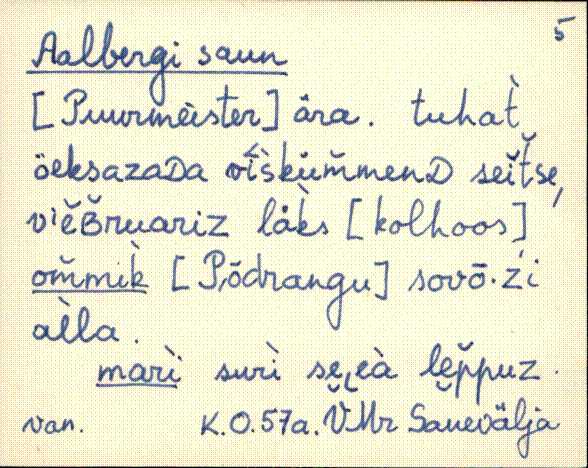 5
Aalbergi saun
[Puurmeister] ära. tuhat̀
öeksazaDa vìskŭm̆menD seit̆se,
vi ĕB̆ruariz läk̀s [kolhoos]
om̆mik̀ [Põdrangu] sovõ·z'i
al̀la.
marì surì seʟeà lĕp̆puz.
van. K.O. 57a. VMr Sauevälja